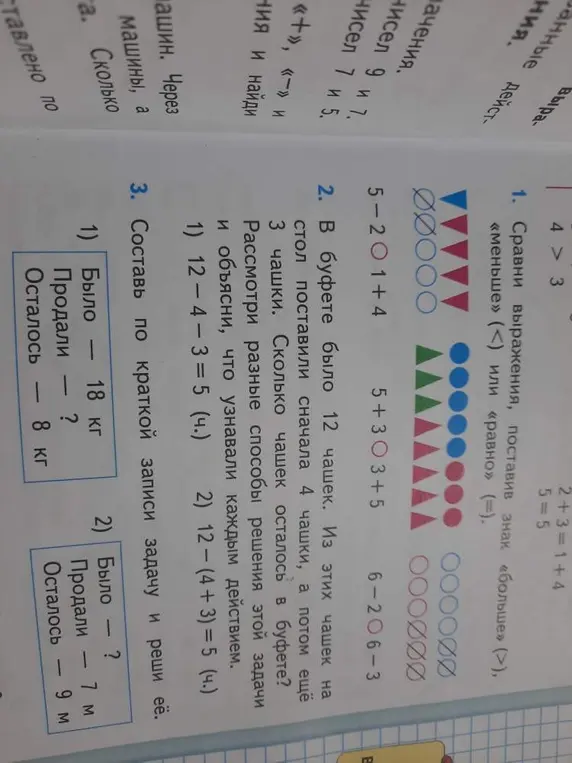 тавлено по
а. Сколько
машины, а
ашин. Через
ния и найди
«+», «−» и
чисел 7 и 5.
чисел 9 и 7.
начения.
дейст.
ния.
анные
выра.
4 > 3
2 + 3 = 1 + 4
5 = 5
1. Сравни выражения, поставив знак «больше» (>),
«меньше» (<) или «равно» (=).
5 − 2 ○ 1 + 4 5 + 3 ○ 3 + 5 6 − 2 ○ 6 − 3
2. В буфете было 12 чашек. Из этих чашек на
стол поставили сначала 4 чашки, а потом ещё
3 чашки. Сколько чашек осталось в буфете?
Рассмотри разные способы решения этой задачи
и объясни, что узнавали каждым действием.
1) 12 − 4 − 3 = 5 (ч.) 2) 12 − (4 + 3) = 5 (ч.)
3. Составь по краткой записи задачу и реши её.
1) Было — 18 кг
Продали — ?
Осталось — 8 кг
2) Было — ?
Продали — 7 м
Осталось — 9 м
В